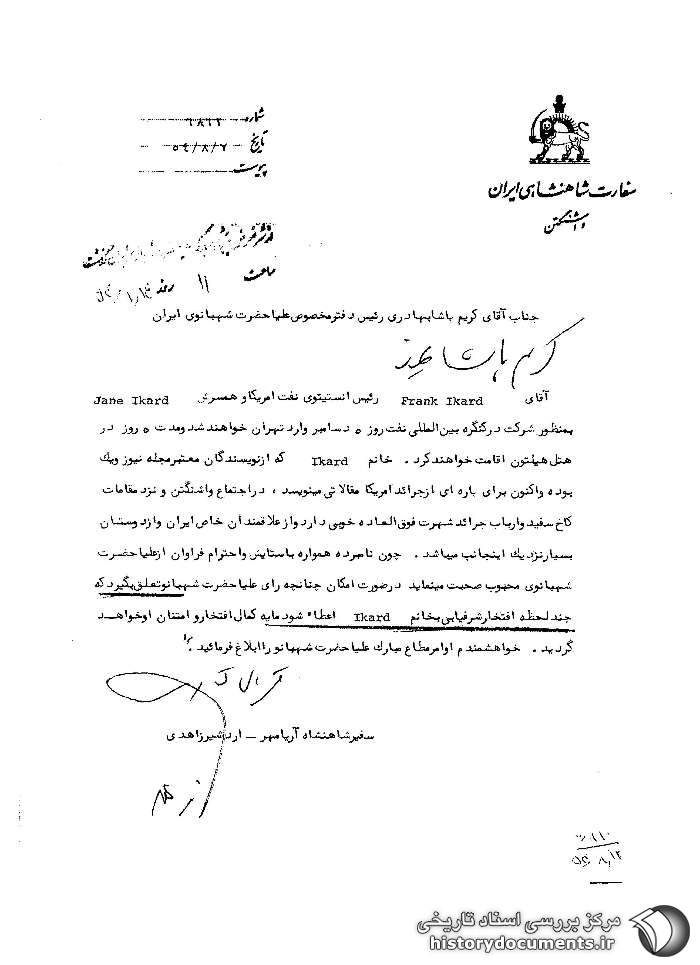 سفارت شاهنشاهی ایران
واشنگتن
شماره ۶۸۶۲
تاریخ ۵۴/۸/۷
پیوست
ساعت ۱۱ روز
جناب آقای کریم پاشابهادری رئیس دفتر مخصوص علیاحضرت شهبانوی ایران
کریم پاشا
آقای Frank Ikard رئیس انستیتوی نفت امریکا و همسرش Jane Ikard
بمنظور شرکت در کنگره بین‌المللی نفت روز ۵ دسامبر وارد تهران خواهند شد و مدت ۵ روز در
هتل هیلتون اقامت خواهند کرد . خانم Ikard که از نویسندگان معتبر مجله نیوز ویک
بوده و اکنون برای پاره ای از جرائد امریکا مقالاتی مینویسد ، در اجتماع واشنگتن و نزد مقامات
کاخ سفید و ارباب جرائد شهرت فوق‌العاده خوبی دارد و از علاقمندان خاص ایران و از دوستان
بسیار نزدیک اینجانب میباشد . چون نامبرده همواره با ستایش و احترام فراوان از علیاحضرت
شهبانوی محبوب صحبت مینماید در صورت امکان چنانچه رای علیاحضرت شهبانو تعلق بگیرد که
چند لحظه افتخار شرفیابی بخانم Ikard اعطاء شود مایه کمال افتخار و امتنان او خواهد
گردید . خواهشمندم اوامر مطاع مبارک علیاحضرت شهبانو را ابلاغ فرمائید .
سفیر شاهنشاه آریامهر – اردشیر زاهدی
مرکز بررسی اسناد تاریخی
historydocuments.ir